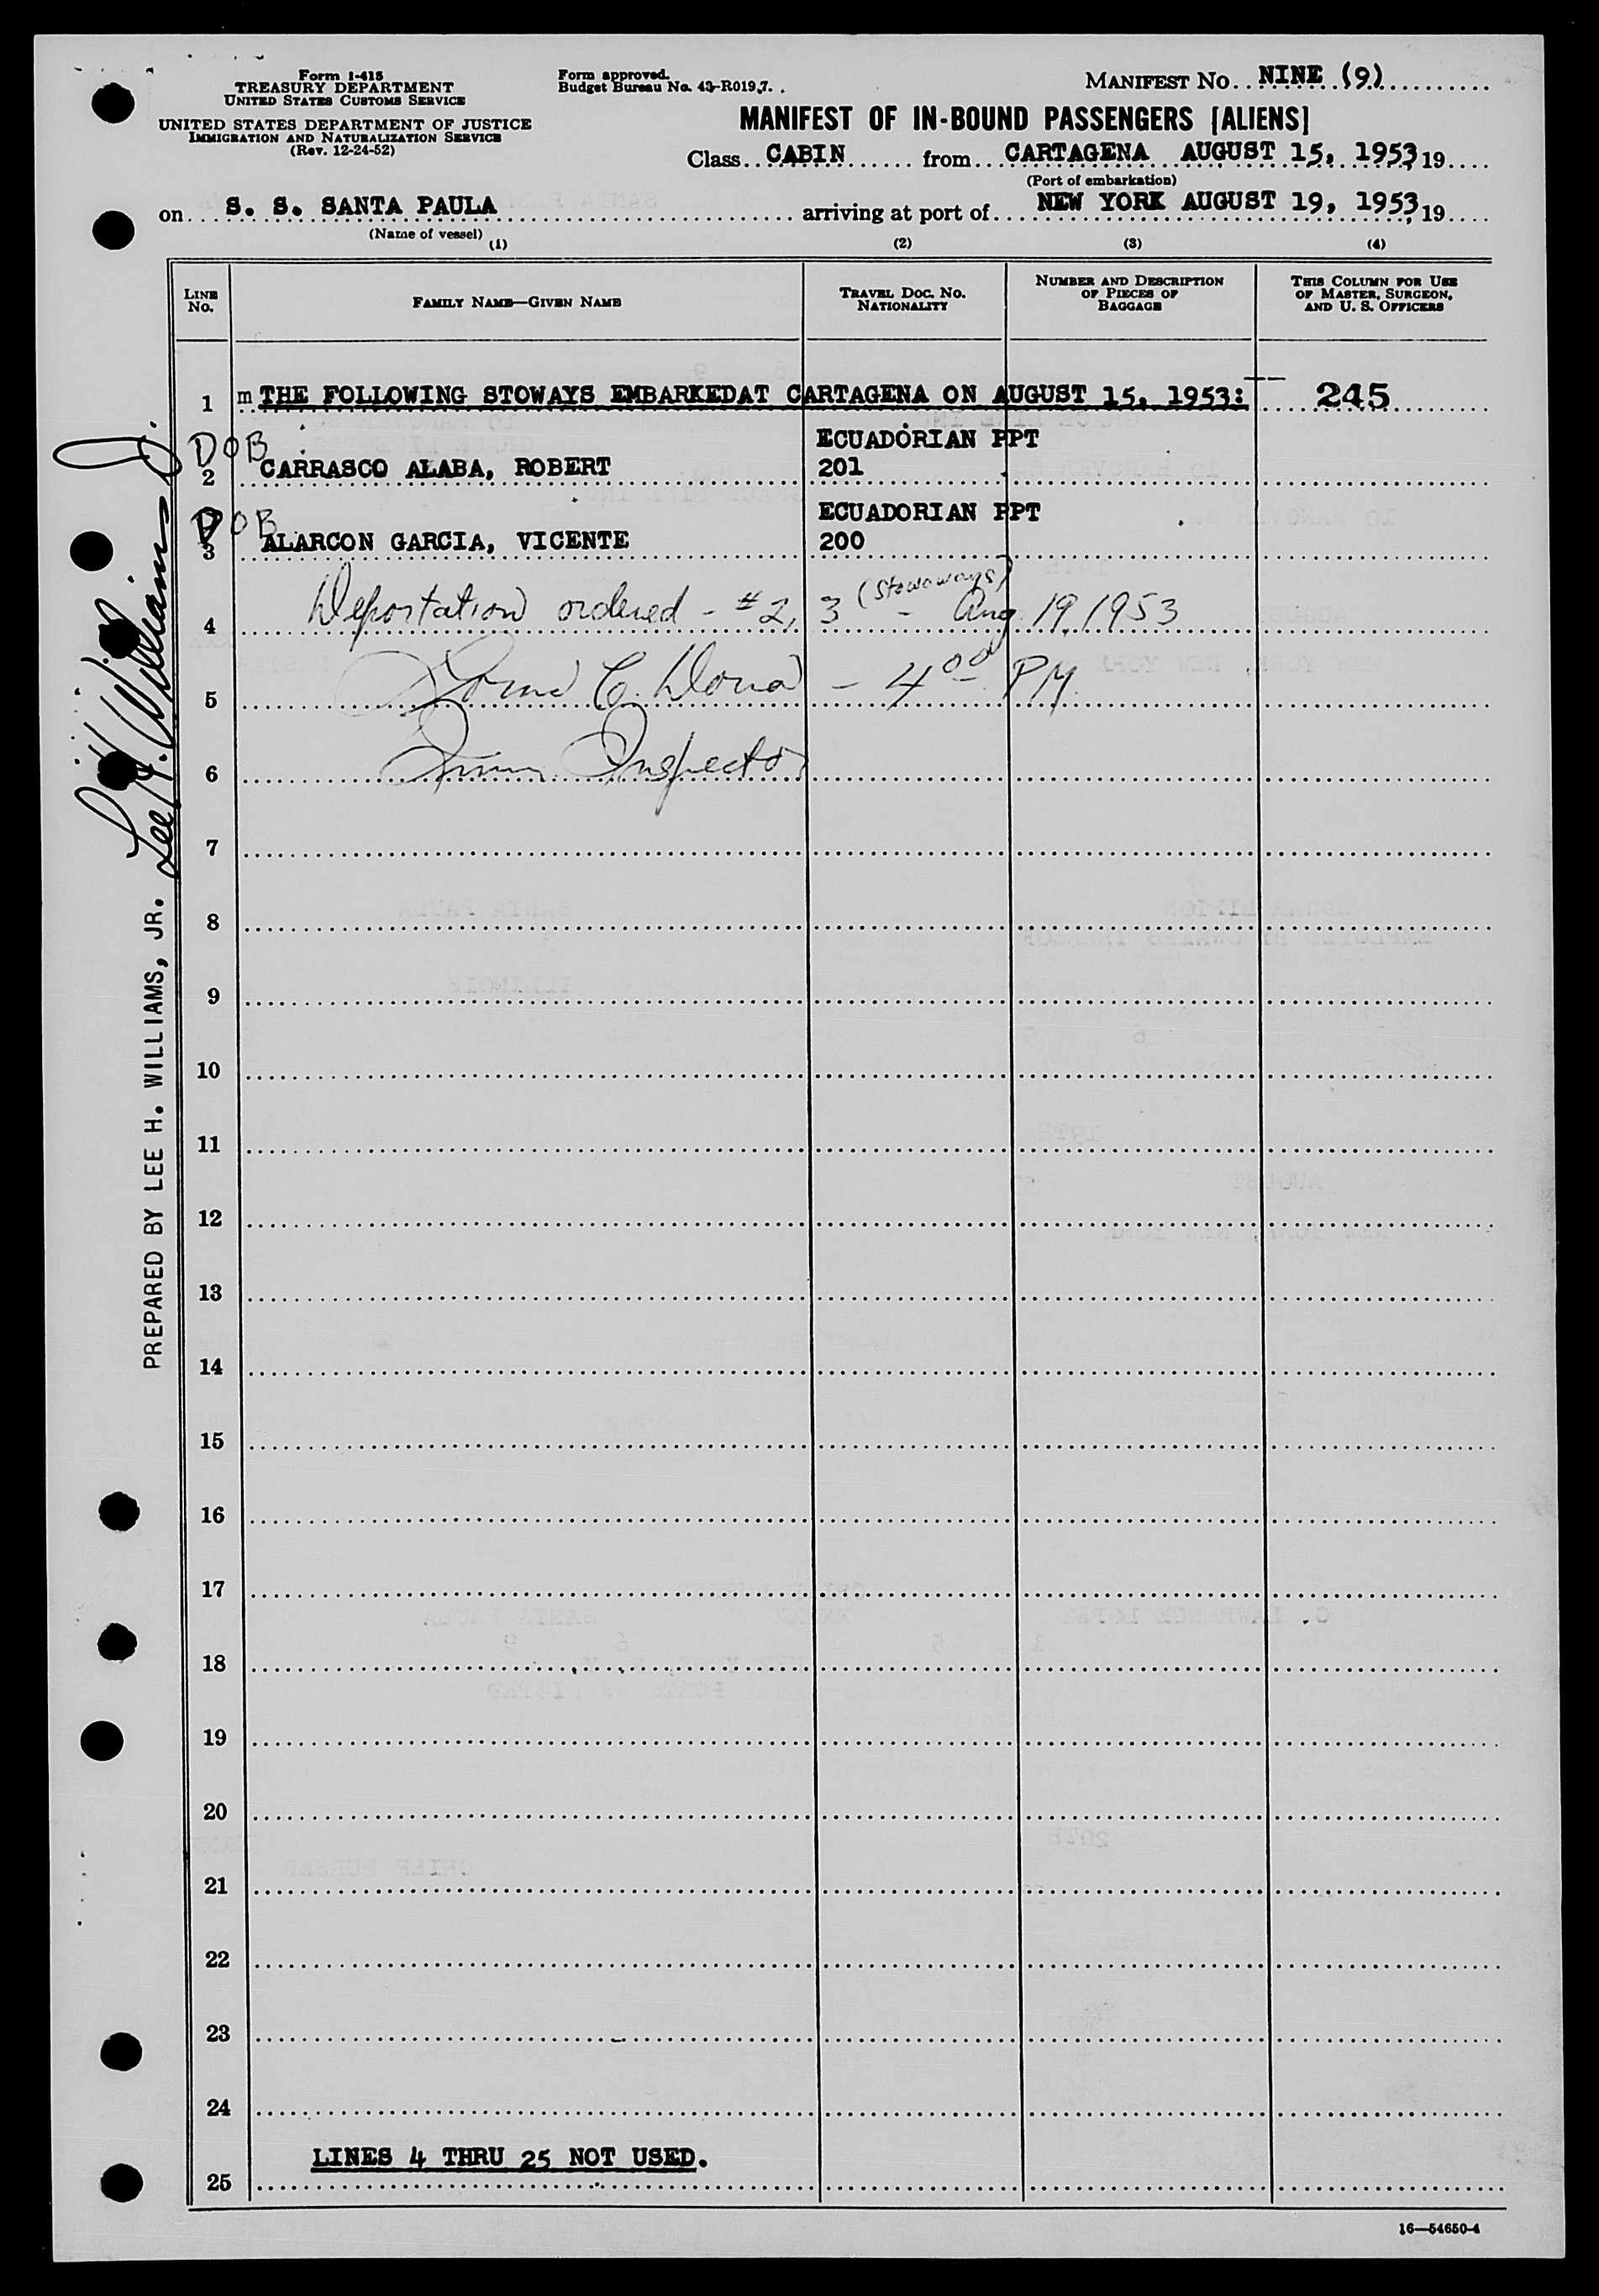 Form I-418
TREASURY DEPARTMENT
UNITED STATES CUSTOMS SERVICE
UNITED STATES DEPARTMENT OF JUSTICE
IMMIGRATION AND NATURALIZATION SERVICE
(Rev. 12-24-52)
Form approved.
Budget Bureau No. 43-R019.7.
MANIFEST NO. NINE (9)
MANIFEST OF IN-BOUND PASSENGERS [ALIENS]
Class CABIN from CARTAGENA AUGUST 15, 1953, 19
(Port of embarkation)
on S. S. SANTA PAULA arriving at port of NEW YORK AUGUST 19, 1953, 19
(Name of vessel)
(1) (2) (3) (4)
LINE NO.
FAMILY NAME—GIVEN NAME
TRAVEL DOC. NO. NATIONALITY
NUMBER AND DESCRIPTION OF PIECES OF BAGGAGE
THIS COLUMN FOR USE OF MASTER, SURGEON, AND U. S. OFFICERS
1 m THE FOLLOWING STOWAYS EMBARKEDAT CARTAGENA ON AUGUST 15, 1953: 245
DOB ECUADORIAN PPT
2 CARRASCO ALABA, ROBERT 201
DOB ECUADORIAN PPT
3 ALARCON GARCIA, VICENTE 200
(Stowaways)
4 Deportation ordered - #2, 3 - Aug 19, 1953
5 C. - 4 00 PM
6 Immn Inspector
7
8
9
10
11
12
13
14
15
16
17
18
19
20
21
22
23
24
LINES 4 THRU 25 NOT USED.
25
16—54650-4
PREPARED BY LEE H. WILLIAMS, JR.
Lee H. Williams Jr.